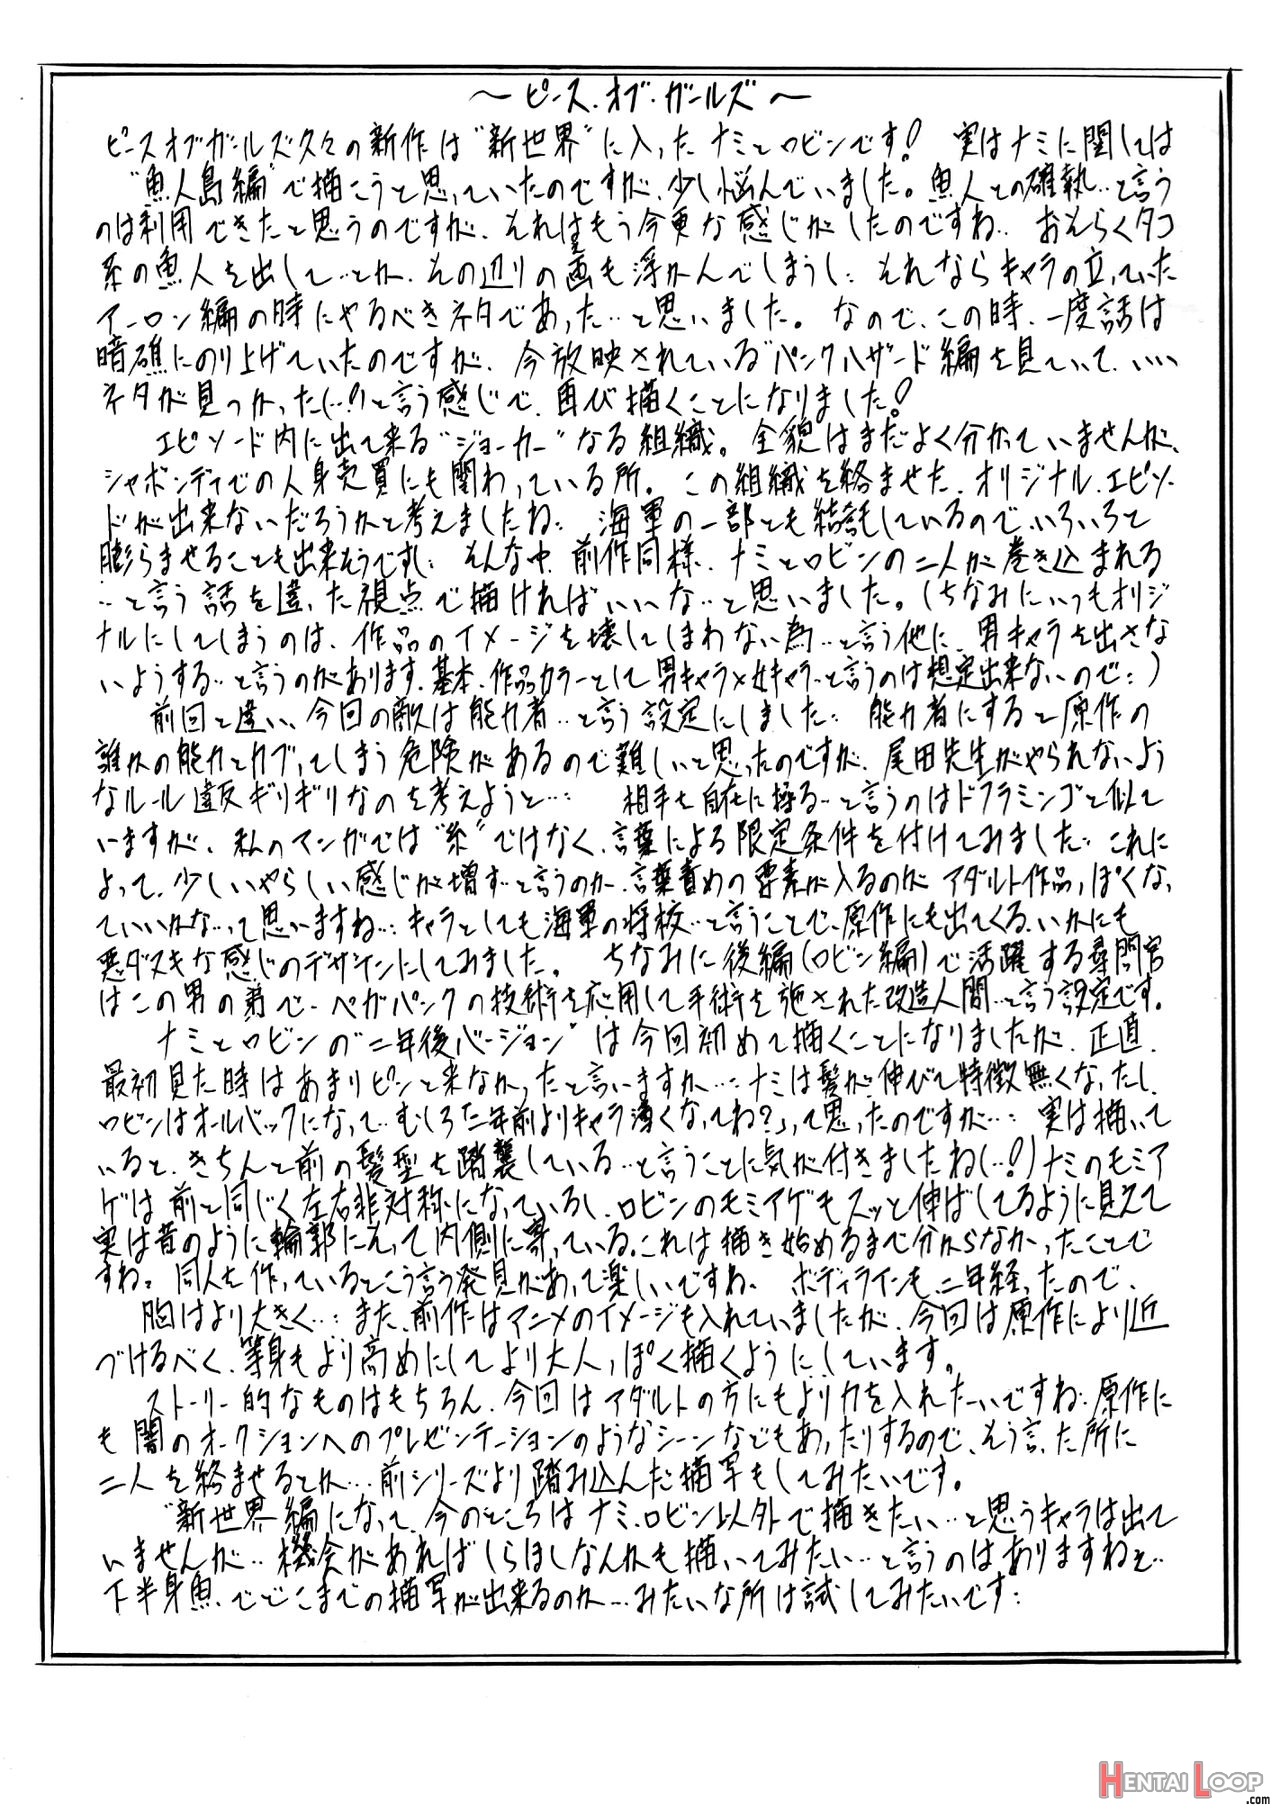 ～ピース・オブ・ガールズ～
ピースオブガールズ久々の新作は“新世界”に入ったナミとロビンです! 実はナミに関しては
“魚人島編”で描こうと思っていたのですが、少し悩んでいました。魚人との確執…と言う
のは利用できたと思うのですが、それはもう今更な感じがしたのですね… おそらくタコ
系の魚人を出して…とか、その辺りの画も浮かんでしまうし… それならキャラの立っていた
アーロン編の時にやるべきネタであった…と思いました。なので、この時、一度話は
暗礁にのり上げていたのですが、今放映されている“パンクハザード編を見ていて、…
ネタが見つかった(…!)と言う感じで、再び描くことになりました!
エピソード内に出て来る“ジョーカー”なる組織。全貌はまだよく分かっていませんが、
シャボンディでの人身売買にも関わっている所。この組織を絡ませた、オリジナル、エピソー
ドが出来ないだろうかと考えましたね… 海軍の一部とも結託しているので、いろいろと
膨らませることも出来そうですし… そんな中、前作同様、ナミとロビンの二人が巻き込まれる
…と言う話を違った視点で描ければいいな…と思いました。(ちなみにいつもオリジ
ナルにしてしまうのは、作品のイメージを壊してしまわない為…と言う他に、男キャラを出さな
いようする…と言うのがあります、基本、作品カラーとして男キャラ×女キャラ…と言うのは想定出来ないので…)
前回と違い、今回の敵は能力者…と言う設定にしました… 能力者にすると原作の
誰かの能力とカブってしまう危険があるので難しいと思ったのですが、尾田先生がやられないよう
なルール違反ギリギリなのを考えようと… 相手を自在に操る…と言うのはドフラミンゴと似て
いますが、私のマンガでは“糸”ではなく、言葉による限定条件を付けてみました… これに
よって、少しいやらしい感じが増す…と言うのか、言葉責めの要素が入るのがアダルト作品っぽくなっ
ていいかな…って思いますね… キャラとしても海軍の将校…と言うことで、原作にも出てくる、いかにも
悪ダヌキな感じのデザインにしてみました。 ちなみに後編(ロビン編)で活躍する尋問官
はこの男の弟で、ベガパンクの技術を応用して手術を施された改造人間…と言う設定です。
ナミとロビンの“二年後バージョン”は今回初めて描くことになりましたが、正直、
最初見た時はあまりピンと来なかったと言いますか… ナミは髪が伸びて特徴無くなったし、
ロビンはオールバックになって、むしろ「二年前よりキャラ薄くなってね?」って思ったのですが… 実は描いて
いると、きちんと前の髪型を踏襲している…と言うことに気が付きましたね(…!)ナミのモミア
ゲは前と同じく左右非対称になっているし、ロビンのモミアゲもスッと伸ばしてるように見えて
実は昔のように輪郭にそって内側に寄っている。これは描き始めるまで分からなかったことで
すね。同人を作っているとこう言う発見があって楽しいですね、 ボディラインも、二年経ったので、
胸はより大きく… また、前作はアニメのイメージも入れていましたが、今回は原作により近
づけるべく、等身もより高めにしてより大人っぽく描くようにしています。
ストーリー的なものはもちろん、今回はアダルトの方にもより力を入れたーいですね、原作に
も闇のオークションへのプレゼンテーションのようなシーンなどもあったりするので、そう言った所に
二人を絡ませるとか… 前シリーズより踏み込んだ描写もしてみたいです。
“新世界編になって、今のところはナミ、ロビン以外で描きたい…と思うキャラは出て
いませんが… 機会があればしらほしなんかも描いてみたい…と言うのはありますねぇ…
下半身魚、でどこまでの描写が出来るのか…みたいな所は試してみたいです…
HENTAI LOOP
.com